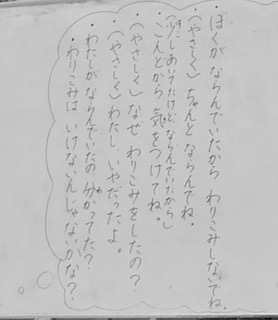 ・ぼくが ならんでいたから わりこみしないでね。
・(やさしく) ちゃんと ならんでね。
・(少しあいてたけどならんでいたから)
こんどから 気をつけてね。
・(やさしく) なぜ わりこみをしたの?
・(やさしく) わたし いやだったよ。
・わたしが ならんでいたの 分かってた?
・わりこみは いけないんじゃないかな?